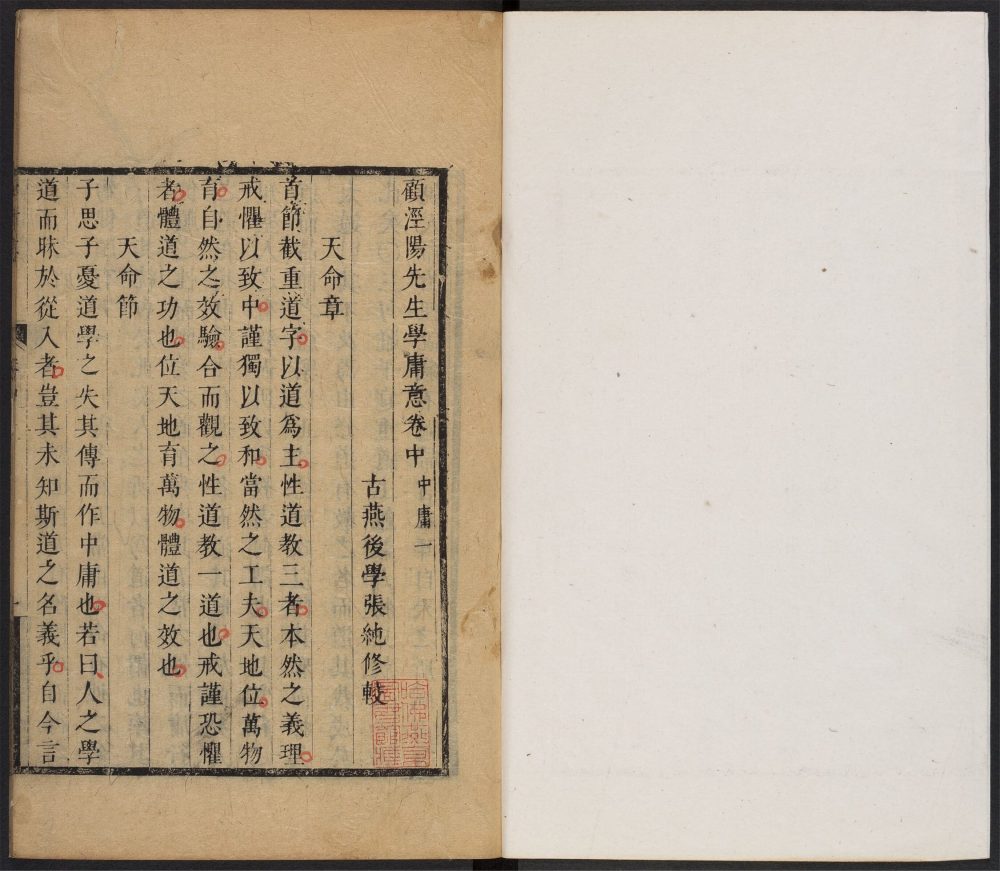 顧涇陽先生學庸意卷中 中庸一
古燕後學張純修較
天命章
首節截重道字以道爲主性道教三者本然之義理
戒懼以致中謹獨以致和當然之工夫天地位萬物
育自然之效驗合而觀之性道教一道也戒謹恐懼
者體道之功也位天地育萬物體道之效也
天命節
子思子憂道學之失其傳而作中庸也若曰人之學
道而昧於從入者豈其未知斯道之名義乎自今言
哈佛燕京圖書館藏